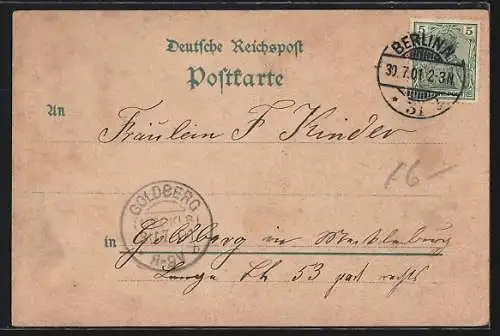 Deutsche Reichspost
Postkarte
5 5
BERLIN N
30.7.01.2-3N.
* 31 *
An
Fräulein F Kinder
16-
GOLDBERG
in Goldberg in Mecklenburg
Lange 53 part rechts